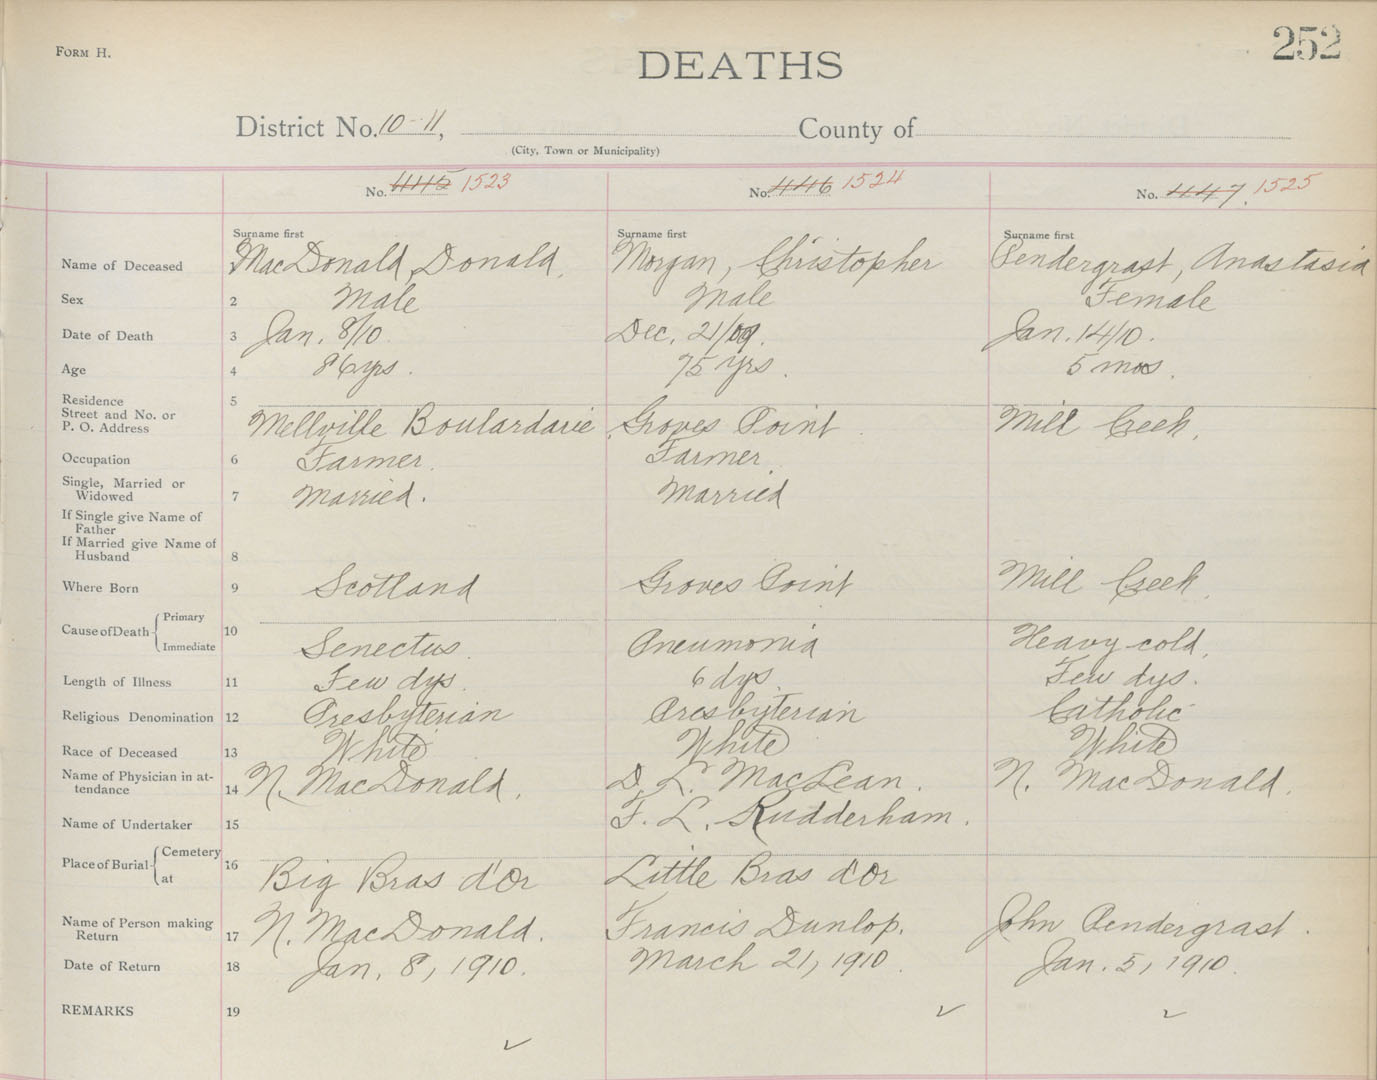 FORM H.
252
DEATHS
District No. 10-11, County of
(City, Town or Municipality)
No. 445 1523 No. 446 1524 No. 447. 1525
Surname first Surname first Surname first
Name of Deceased MacDonald, Donald. Morgan, Christopher Pendergrast, Anastasia
Sex 2 Male Male Female
Date of Death 3 Jan. 8/10. Dec. 21/09. Jan. 14/10.
Age 4 86 yrs. 75 yrs. 5 mos.
Residence 5
Street and No. or
P. O. Address Mellville Boulardarie Groves Point. Mill Creek.
Occupation 6 Farmer. Farmer.
Single, Married or
Widowed 7 Married. Married
If Single give Name of
Father
If Married give Name of
Husband 8
Where Born 9 Scotland Groves Point Mill Creek.
Cause of Death Primary
10
Immediate Senectus. Pneumonia Heavy cold.
Length of Illness 11 Few dys. 6 dys. Few dys.
Religious Denomination 12 Presbyterian Presbyterian Catholic
Race of Deceased 13 White White White
Name of Physician in at-
tendance 14 N. MacDonald. D. L. MacLean. N. MacDonald.
Name of Undertaker 15 F. L. Rudderham.
Place of Burial Cemetery 16
at Big Bras d'Or Little Bras d'Or
Name of Person making
Return 17 N. MacDonald. Francis Dunlop. John Pendergrast.
Date of Return 18 Jan. 8, 1910. March 21, 1910. Jan. 5, 1910.
REMARKS 19